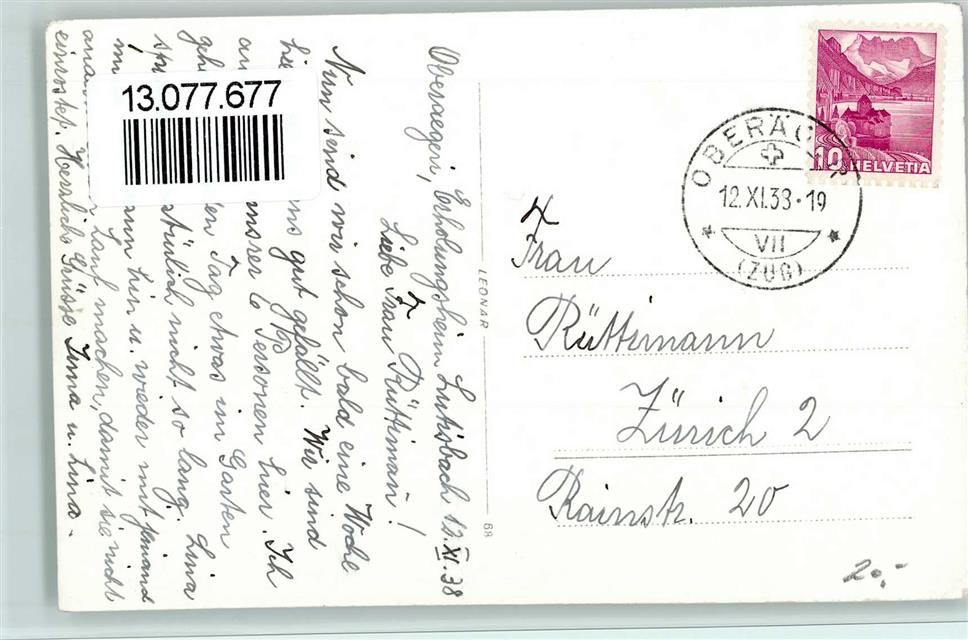 13.077.677
Oberaegeri, Erholungsheim Lutisbach 12.XI.38
Liebe Frau Rüttimann!
Nun sind wir schon bald eine Woche
hie uns gut gefällt. Wir sind
an unsrer 60 Personen hier. Ich
gehe den Tag etwas im Garten
natürlich nicht so lang. Lina
dann hin u. wieder mit jemand
Lauf machen, damit sie nicht
einrostet. Herzliche Grüsse Irma u. Lina.
LEONAR
88
HELVETIA
10
OBERÄGERI
12.XI.38-19
VII
(ZUG)
Frau
Rüttimann
Zürich 2
Rainstr. 20
20,-